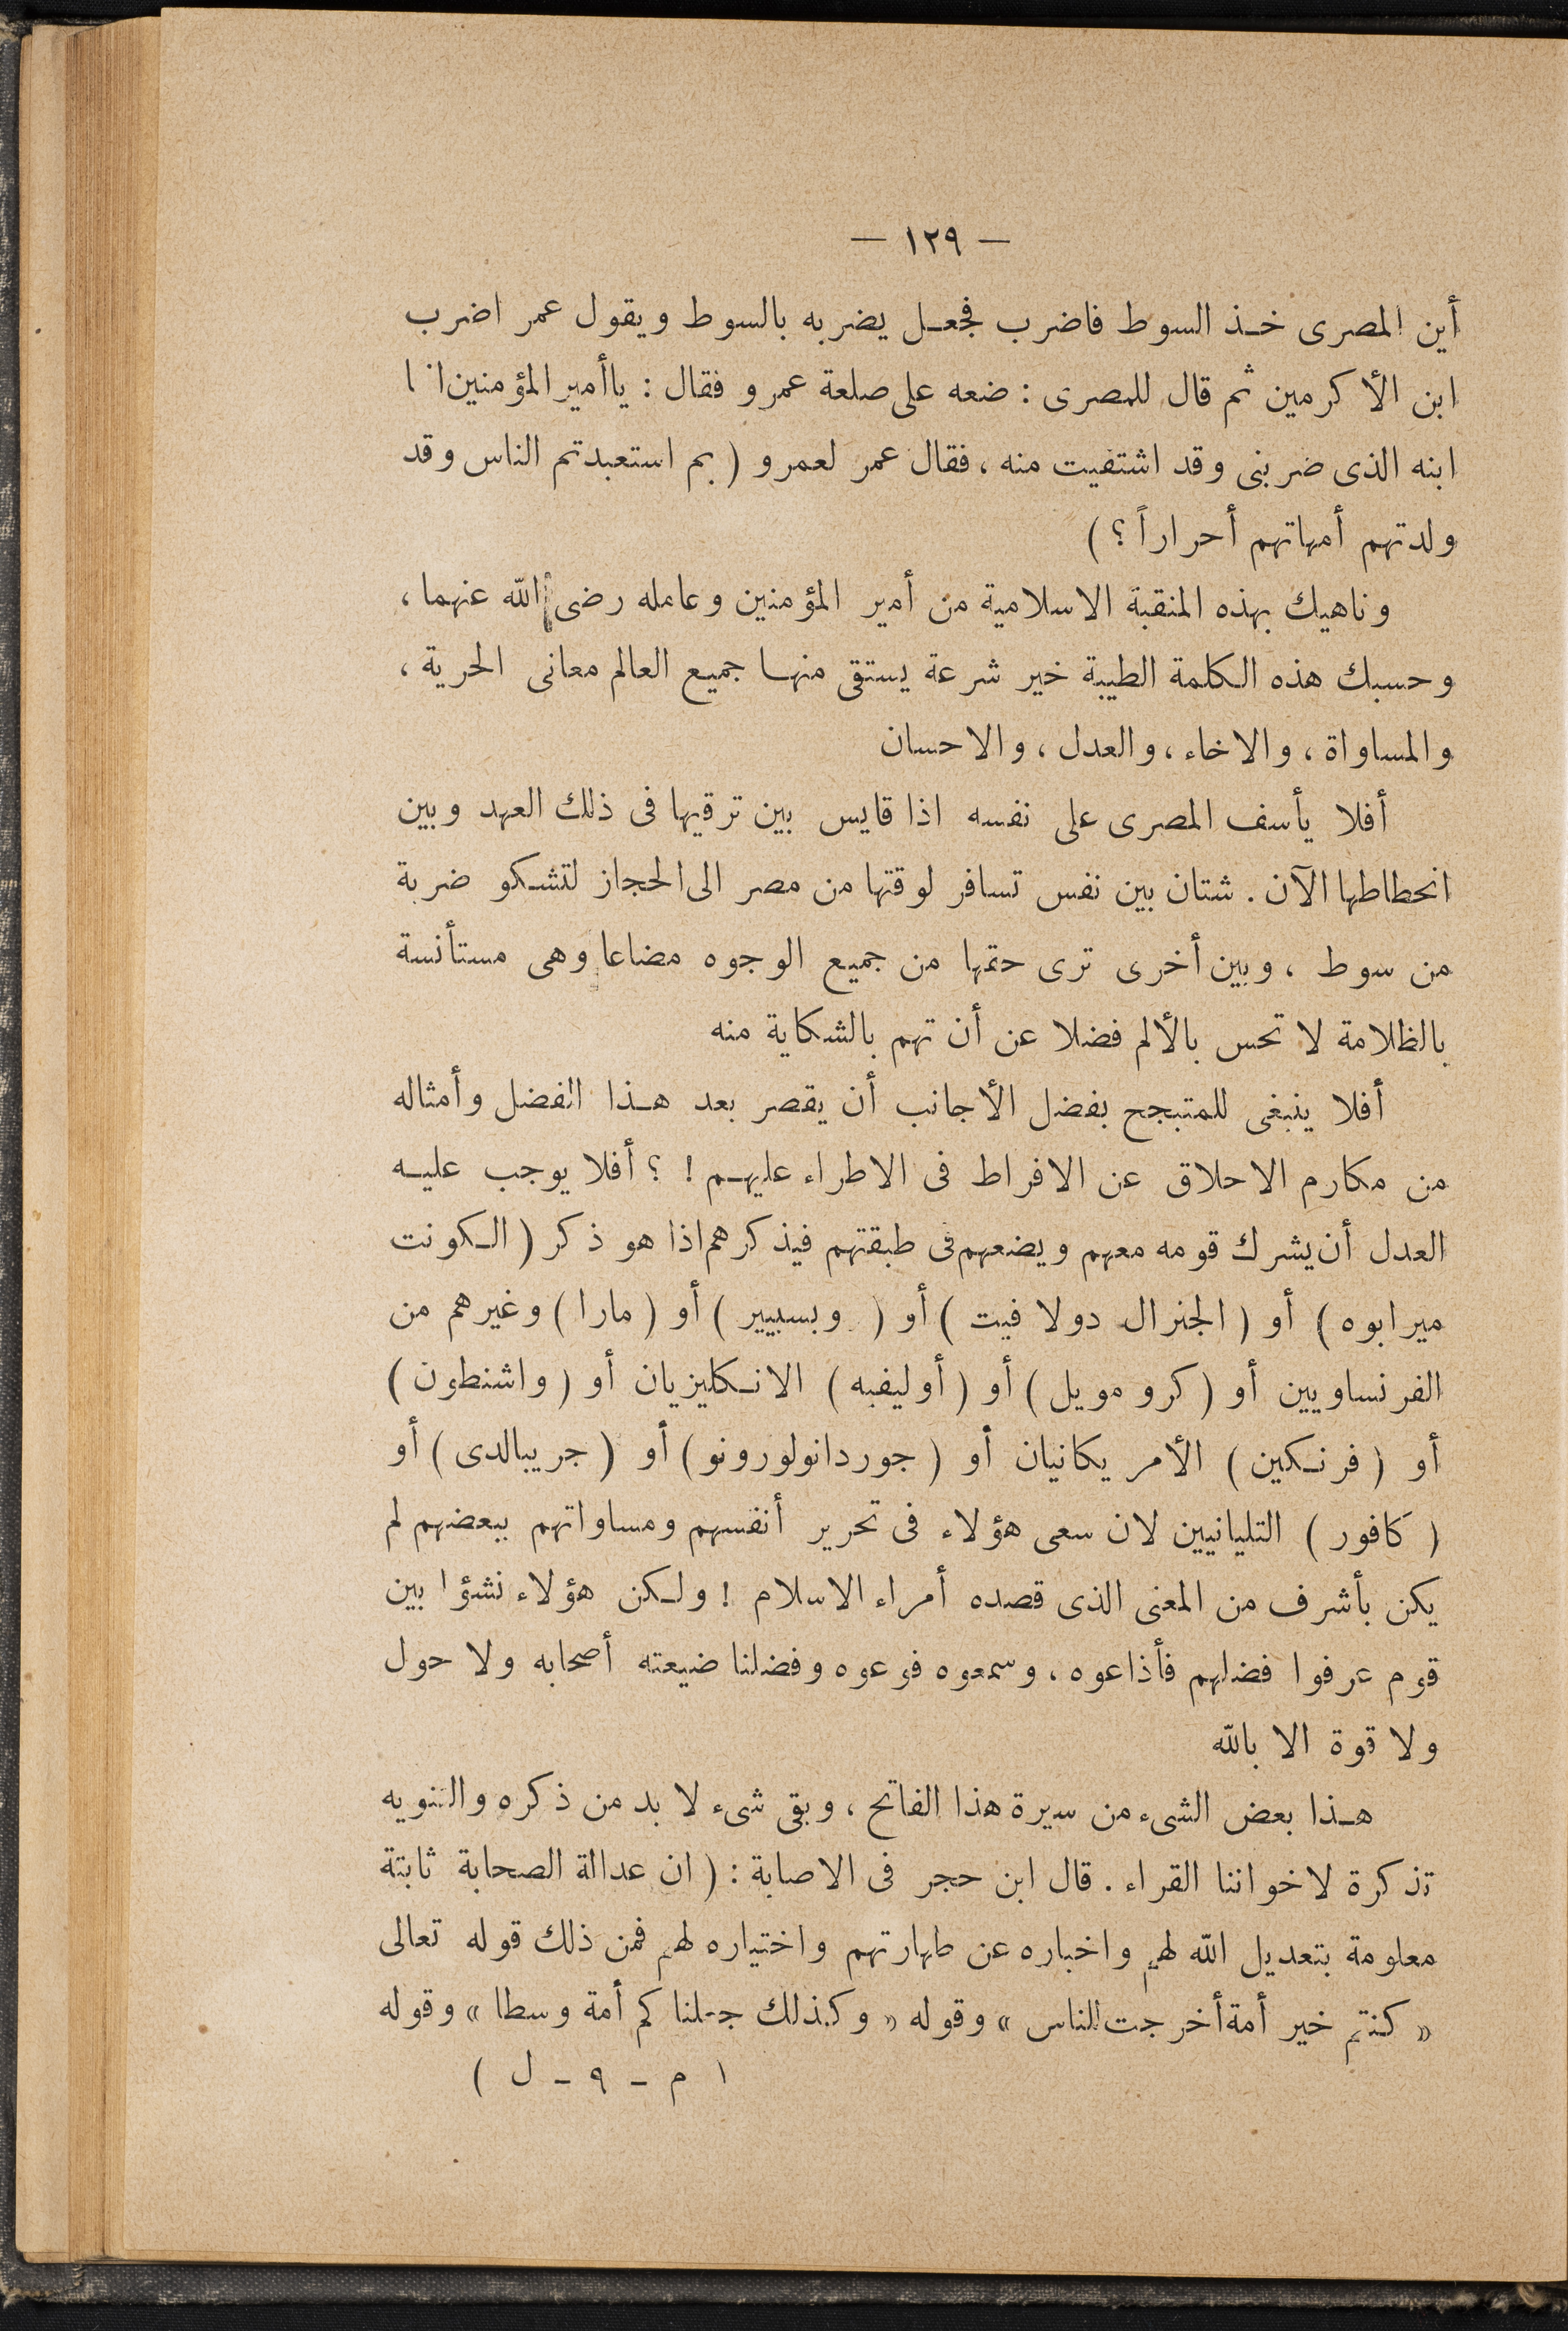 — ١٢٩ —
أين المصرى خذ السوط فاضرب فجعل يضربه بالسوط ويقول عمر اضرب
ابن الأكرمين ثم قال للمصرى : ضعه على صلعة عمرو فقال : ياأمير المؤمنين
ابنه الذى ضربنى وقد اشتفيت منه ، فقال عمر لعمرو ( بم استعبدتم الناس وقد
ولدتهم أمهاتهم أحراراً ؟ )
وناهيك بهذه المنقبة الاسلامية من أمير المؤمنين وعامله رضى الله عنهما ،
وحسبك هذه الكلمة الطيبة خير شرعة يستقى منها جميع العالم معانى الحرية ،
والمساواة ، والاخاء ، والعدل ، والاحسان
أفلا يأسف المصرى على نفسه اذا قايس بين ترقيها فى ذلك العهد وبين
انحطاطها الآن . شتان بين نفس تسافر لوقتها من مصر الى الحجاز لتشكو ضربة
من سوط ، وبين أخرى ترى حقها من جميع الوجوه مضاعا وهى مستأنسة
بالظلامة لا تحس بالألم فضلا عن أن تهم بالشكاية منه
أفلا ينبغى للمتبجح بفضل الأجانب أن يقصر بعد هذا الفضل وأمثاله
من مكارم الاحلاق عن الافراط فى الاطراء عليهم ! ؟ أفلا يوجب عليه
العدل أن يشرك قومه معهم ويضعهم فى طبقتهم فيذكرهم اذا هو ذكر ( الكونت
ميرابوه ) أو ( الجنرال دولا فيت ) أو ( وبسبيير ) أو ( مارا ) وغيرهم من
الفرنساويين أو ( كرومويل ) أو ( أوليفبه ) الانكليزيان أو ( واشنطون )
أو ( فرنكين ) الأمريكانيان أو ( جوردانولورونو ) أو ( جريبالدى ) أو
( كافور ) التليانيين لان سعى هؤلاء فى تحرير أنفسهم ومساواتهم ببعضهم لم
يكن بأشرف من المعنى الذى قصده أمراء الاسلام ! ولكن هؤلاء نشؤا بين
قوم عرفوا فضلهم فأذاعوه ، وسمعوه فوعوه وفضلنا ضيعته أصحابه ولا حول
ولا قوة الا بالله
هذا بعض الشىء من سيرة هذا الفاتح ، وبقى شىء لا بد من ذكره والتنويه
تذكرة لاخواننا القراء . قال ابن حجر فى الاصابة : ( ان عدالة الصحابة ثابتة
معلومة بتعديل الله لهم واخباره عن طهارتهم واختياره لهم فمن ذلك قوله تعالى
« كنتم خير أمة أخرجت للناس » وقوله « وكذلك جعلناكم أمة وسطا » وقوله
( م - ٩ - ل )